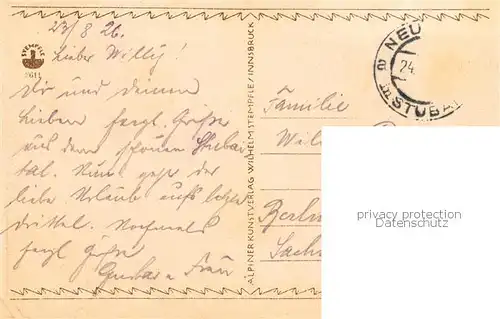 23/8 26.
Lieber Willy!
Dir und deinen
Lieben herzl. Grüße
aus dem schönen Stubai
tal. Nun geht der
liebe Urlaub aufs letzte
drittel. Nochmals
herzl Grüße
Gustav u Frau
STEMPFLE
ALPINER KUNSTVERLAG WILHELM STEMPFLE / INNSBRUCK
NEU
24.
STUBAI
Familie
Berlin
privacy protection
Datenschutz